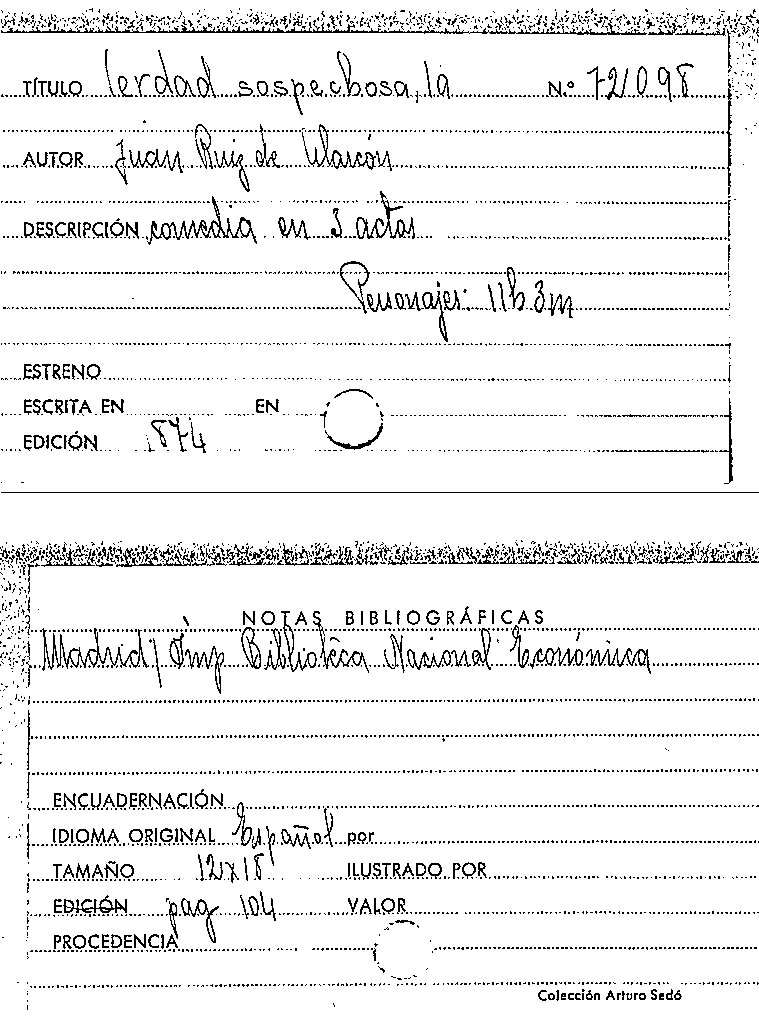 TÍTULO Verdad sospechosa, la N.º 721098
AUTOR Juan Ruiz de Alarcón
DESCRIPCIÓN comedia en 3 actos
Personajes: 11h 3m
ESTRENO
ESCRITA EN EN
EDICIÓN 1874
NOTAS BIBLIOGRÁFICAS
Madrid / Imp Biblioteca Nacional Económica
ENCUADERNACIÓN
IDIOMA ORIGINAL Español por
TAMAÑO 12x18 ILUSTRADO POR
EDICIÓN pag 104 VALOR
PROCEDENCIA
Colección Arturo Sedó